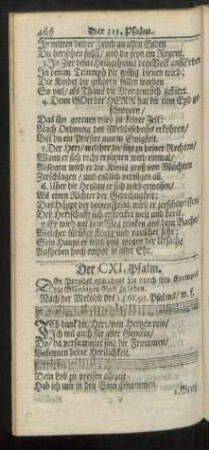 466 Der 111. Psalm.
In mitten deiner Feind an allen Enden
Du herrschen sollt, und da seyn ein Regent.
3. In Zier deins Heiligthums dein Volk auf Erden
In deinem Triumph dir willig dienen wird;
Die Kinder dir geboren sollen werden
So viel, als Thaus die Morgenröth gebiert.
4. Denn GOtt der HERR hat dir ein Eyd geschworen
Das ihn gereuen wird zu keiner Zeit:
Nach Ordnung des Melchisedechs erkohren,
Bist du ein Priester nun in Ewigkeit.
5. Der Herr, welcher die sitzt zu deiner Rechten,
Wann er sich recht erzürnen wird einmal,
Alsdann wird er die König groß von Mächten
Zerschlagen, und endlich vertilgen all.
6. Über die Heyden er sich wird erweisen,
Als einen Richter der Gerechtigkeit:
Das Haupt der seinen Feind wird er zerschmeissen,
Deß Herrschafft sich erstrecket weit und breit.
7. Er wird auf dem Weg trinken aus dem Bache
Welcher fürüber fleußt und rauschet sehr:
Sein Haupt er wird von wegen der Ursache
Aufheben hoch empor in aller Ehr.
Der CXI. Psalm.
Nach der Melodie des
ICh dank dir, HErr, von Herzen rein,
Ich will auch für aller Gemein,
Da versammlet sind die Frommen,
Bekennen deine Herrlichkeit.
Dein Lob zu preisen allezeit
Hab ich mir in den Sinn genommen.